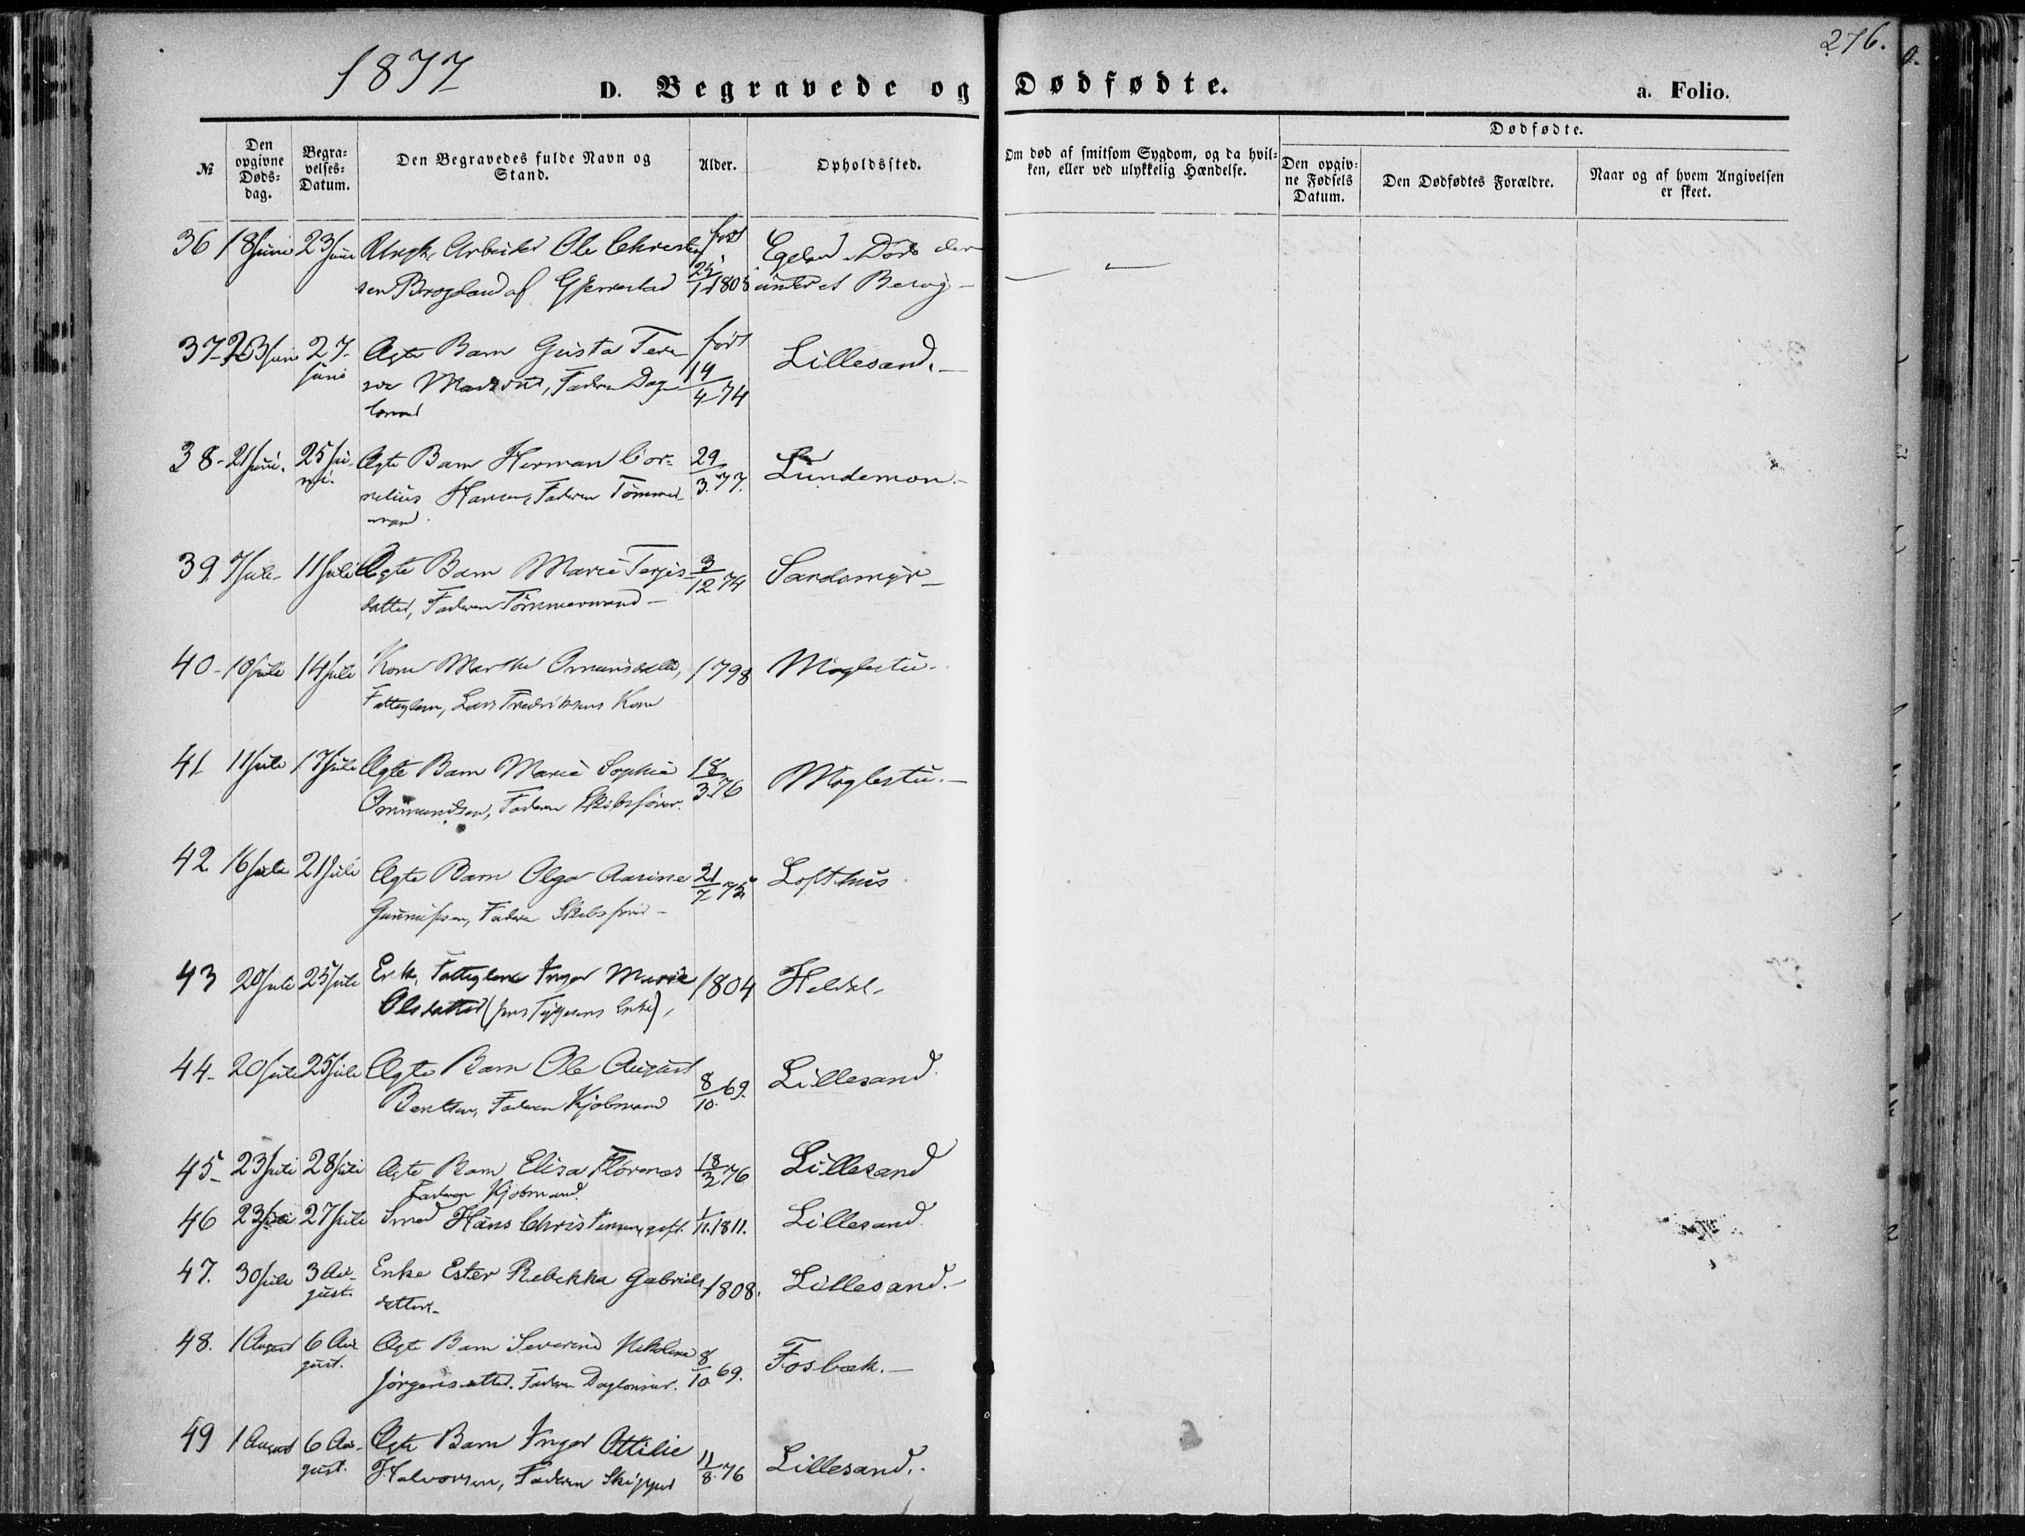 1877
276.
D. Begravede og Dødfødte.
a. Folio.
№
Den opgivne Døds-dag.
Begra-velses-Datum.
Den Begravedes fulde Navn og Stand.
Alder.
Opholdssted.
Om død af smitsom Sygdom, og da hvil-ken, eller ved ulykkelig Hændelse.
Dødfødte.
Den opgiv-ne Fødsels Datum.
Den Dødfødtes Forældre.
Naar og af hvem Angivelsen er skeet.
36 18 Juni 23 Juni Ungk. Arbeider Ole Christen født Egeland
sen Brogland af Gjerrestad 1805
37- 23 Juni 27- Ægte Barn Gusta født Lillesand.-
Juni Faderen Dag 14/4 74
lønner
38- 21 Juni. 25 Ju- Ægte Barn Herman Cor= 29/3. 77. Lundemon.-
ni. nelius Hansen, Faderen Tømmer
mand.
39. 7 Juli- 11 Juli Ægte Barn Marie Terjes- 3/12 74 Sandsmyr-
datter, Faderen Tømmermand-
40- 10 Juli 14 Juli Kone Marthe 1798 Moglestu.-
Fattiglem, Lars Fredriksens Kone
41 11 Juli 17 Juli Ægte Barn Marie Sophie 18/3 76 Moglestu.-
Ommundsen, Faderen Skibsfører.
42 16 Juli 21 Juli Ægte Barn Olga Aasine 21/7 75 Lofthus
Gunnufsen, Faderen Skibsfører-
43 20 Juli 25 Juli Enke, Fattiglem Inger Marie 1804 Heldal-
Olsdatter (Jens Tygesens Enke),
44- 20 Juli 25 Juli Ægte Barn Ole August 8/10. 69. Lillesand.
Bentsen, Faderen Kjøbmand
45- 23 Juli 28 Juli Ægte Barn Elisa Florenas 18/3 76 Lillesand
Faderen Kjøbmand.
46 23 Juli 27 Juli Smed Hans Christensen, gift. 1/11. 1811. Lillesand.
47. 30 Juli 3 Au- Enke Ester Rebekka Gabriels 1808. Lillesand.-
gust. datter-
48. 1 August 6 Au Ægte Barn Severine Nikoline 8/10 69. Fosbæk.-
gust. Jørgensdatter. Faderen Daglønner.
49 1 August 6 Au- Ægte Barn Inger Ottilie 11/8 76 Lillesand.
gust. Halvorsen, Faderen Skipper